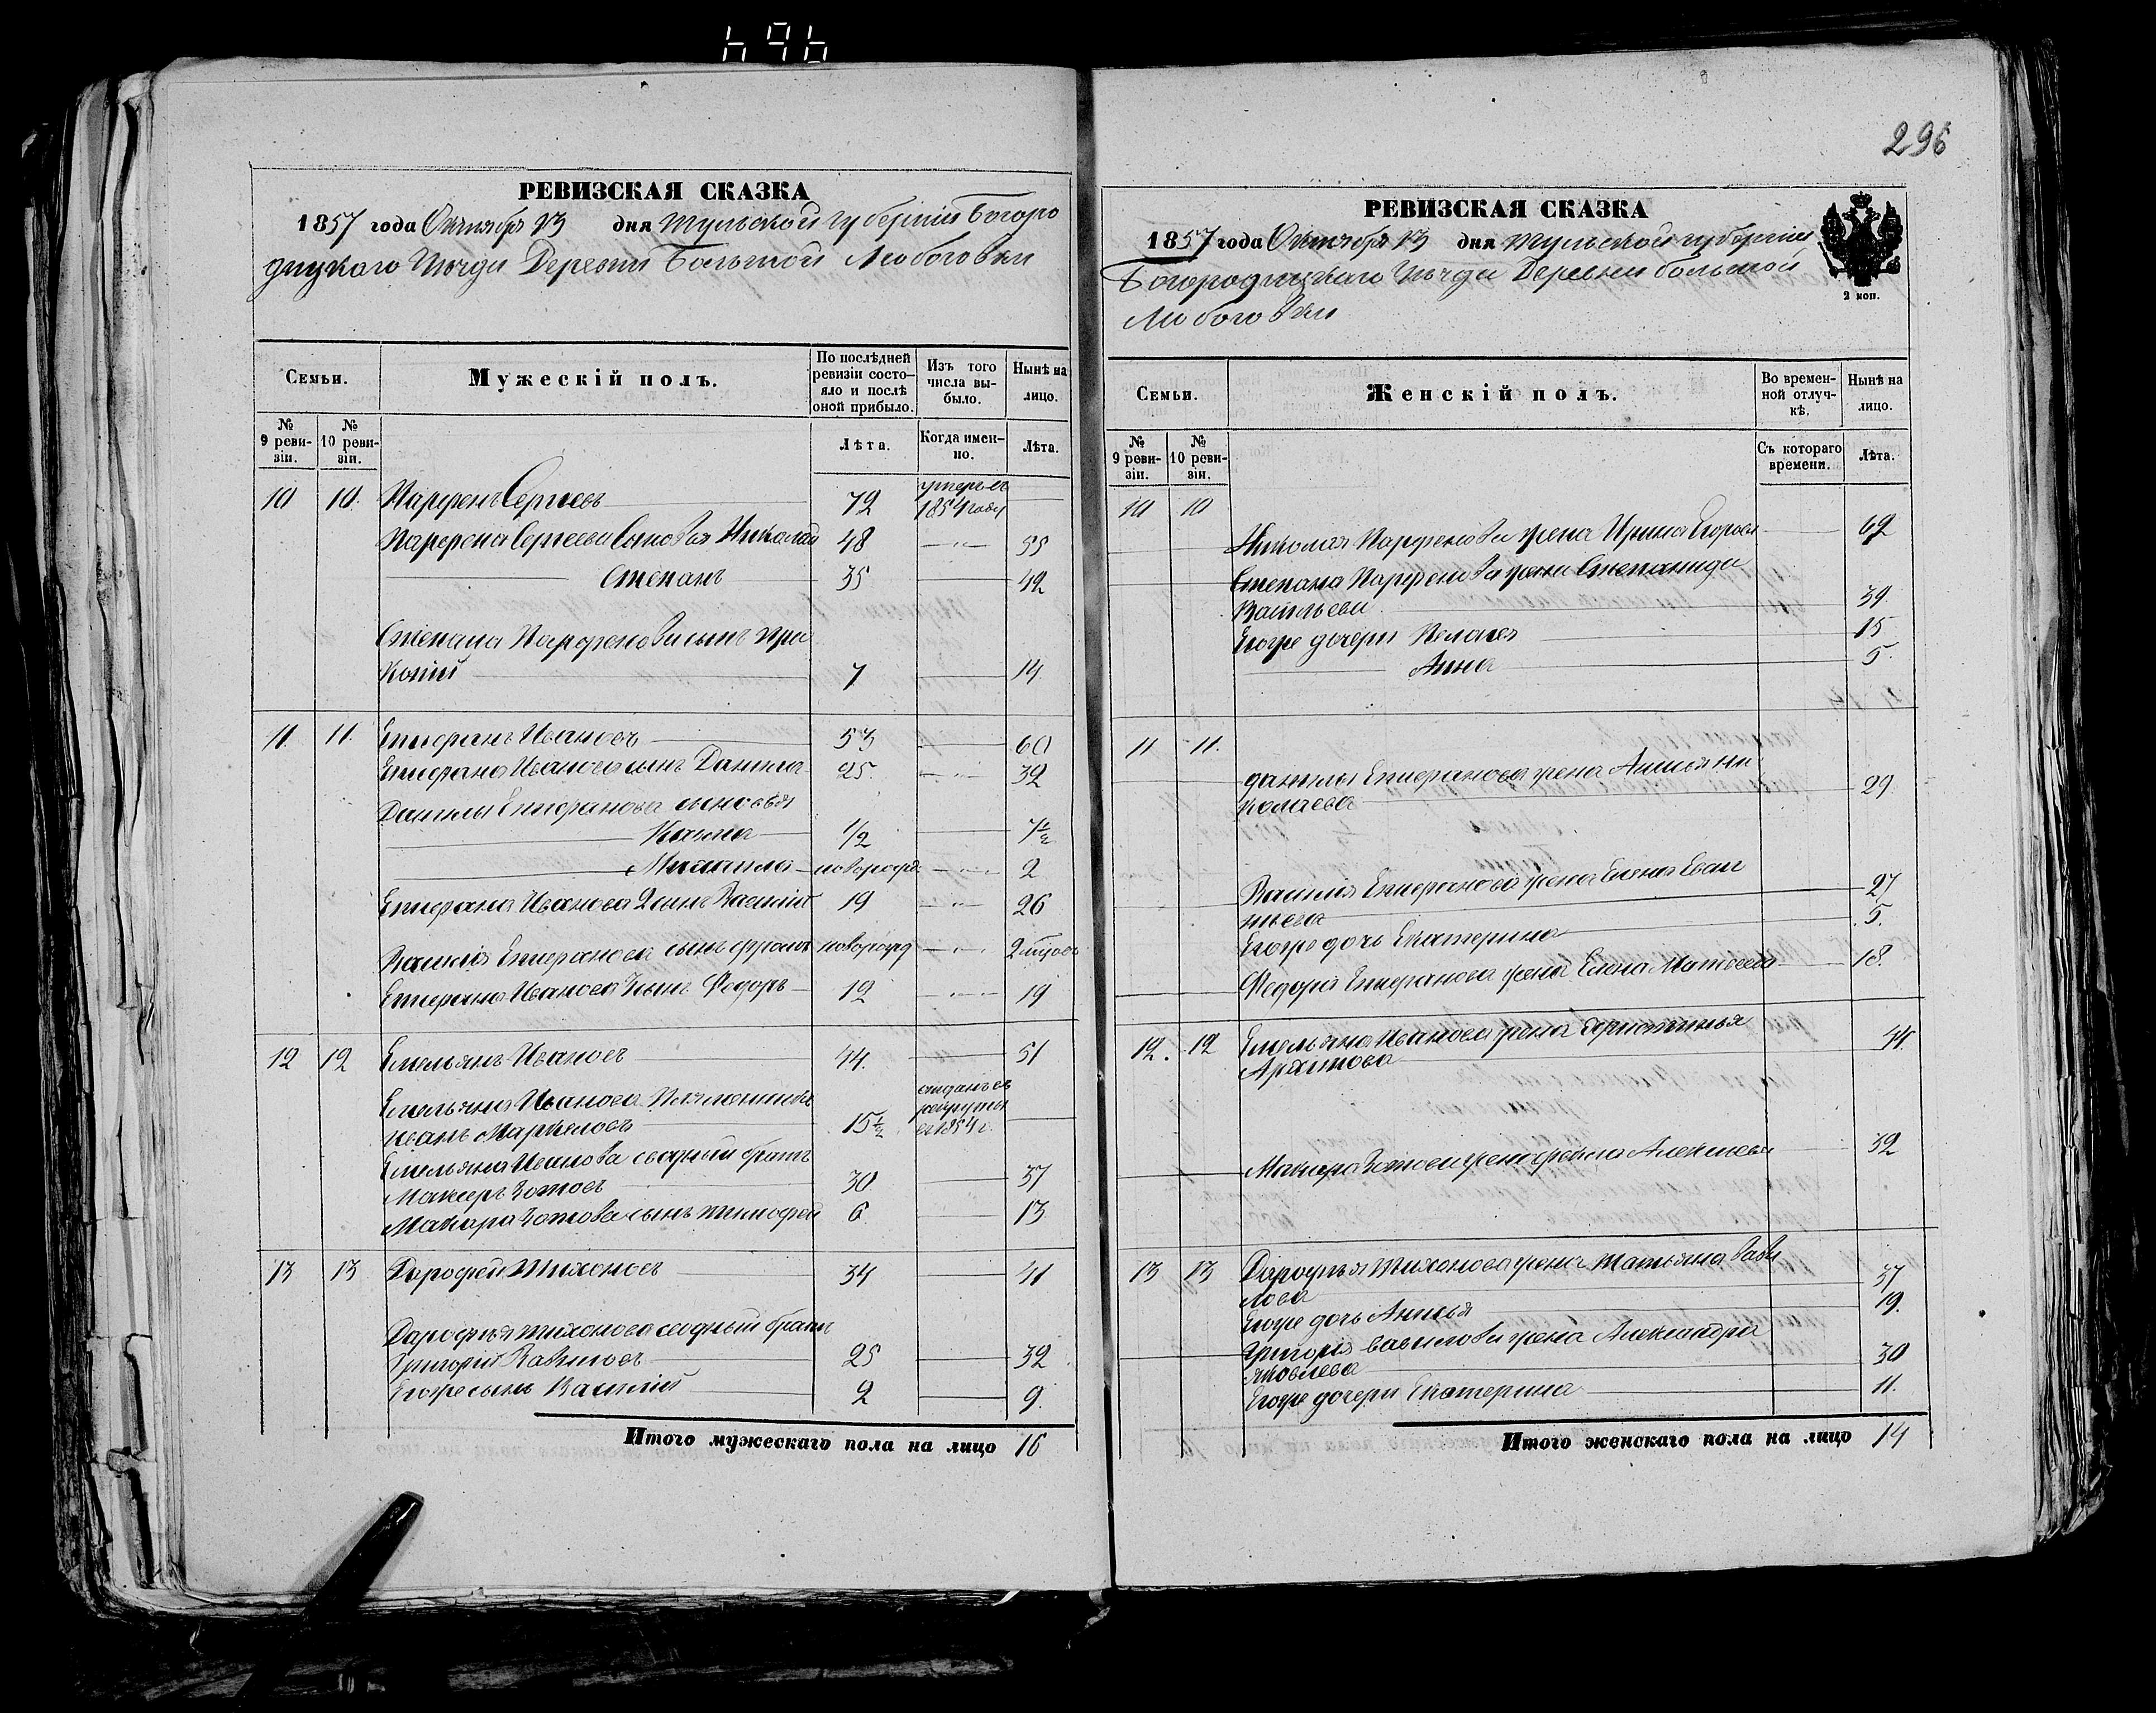 296
РЕВИЗСКАЯ СКАЗКА
1857 года Октября 13 дня Тульской губернии Богоро
дицкаго Уѣзда Деревни Большой Любоговки
Семьи.
Мужескій полъ.
По послѣдней ревизіи состо-яло и послѣ оной прибыло.
Изъ того числа вы-было.
Нынѣ на лицо.
№ 9 реви-зіи.
№ 10 реви-зіи.
Лѣта.
Когда имен-но.
Лѣта.
10 10 Парфенъ Сергеевъ 72 умеръ въ 1854 году
Парфена Сергеева Сыновья Николай 48 55
Степанъ 35 42
Степана Парфенова сынъ Про
копій 7 14
11. 11. Епифанъ Ивановъ 53 60
Епифана Иванова сынъ Данила 25. 32
Данилы Епифанова сыновья
1/2 7 1/2
Михаила новорожд. 2
Епифана Иванова 2 сынъ Василій 19 26
Василія Епифанова сынъ новорожд
Епифана Иванова 3 сынъ Федоръ 12 19
12 12 Емельянъ Ивановъ 44. 51
Емельяна Иванова Племянникъ
Иванъ Маркеловъ 15 1/2 отданъ въ рекруты въ 1854 г.
Емельяна Иванова сводный братъ
Макаръ Зотовъ 30. 37
Макара Зотова сынъ Тимофей 6 13
13 13 Дарофей Тихоновъ 34 41
Дарофея Тихонова сводный братъ
Григорій Вавиловъ 25 32
Его же сынъ Василій 2 9.
Итого мужескаго пола на лицо 16
РЕВИЗСКАЯ СКАЗКА
1857 года Октября 13 дня Тульской губерніи
Богородицкаго Уѣзда Деревни большой
Любоговки
2 коп.
Семьи.
Женскій полъ.
Во времен-ной отлуч-кѣ.
Нынѣ на лицо.
№ 9 реви-зіи.
№ 10 реви-зіи.
Съ котораго времени.
Лѣта.
10 10
Николая Парфенова жена Ирина Егорова 62
Степана Парфенова жена Степанида
Васильева 39.
Его же дочери Пелагея 15
Анна 5.
11 11.
Данилы Епифанова жена Ни
колаева 29
Василія Епифанова жена Елена
27
Его же дочь Екатерина 5.
Федора Епифанова жена Елена Матвеева 18.
12. 12 Емельяна Иванова жена
Архипова 44.
Макара Зотова жена Алексеева 32
13 13 Дарофея Тихонова жена Татьяна Вави
лова 37
Его же дочь Анисья 19.
Григорія Вавилова жена Александра
Яковлева 30
Его же дочери Екатерина 11.
Итого женскаго пола на лицо 14